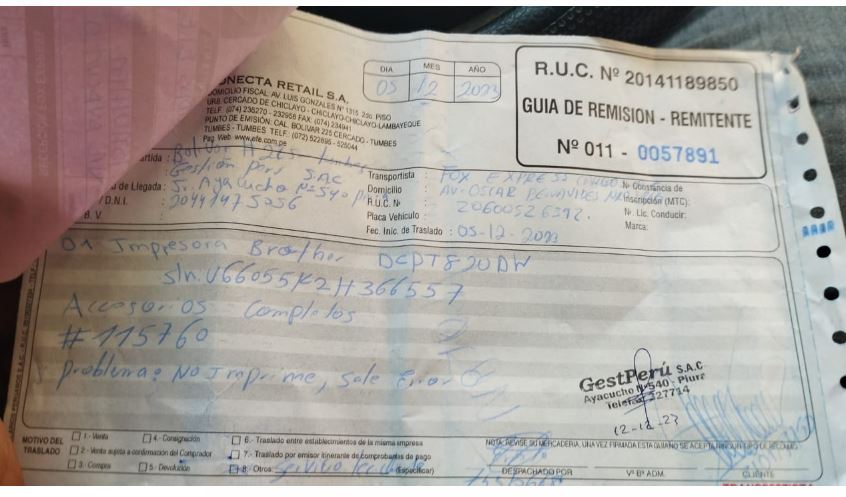 CONECTA RETAIL S.A.
DOMICILIO FISCAL: AV. LUIS GONZALES N° 1315 2do. PISO
URB. CERCADO DE CHICLAYO - CHICLAYO-CHICLAYO-LAMBAYEQUE
TELF. (074) 236270 - 232956 FAX: (074) 234941
PUNTO DE EMISIÓN: CAL. BOLIVAR 225 CERCADO - TUMBES
TUMBES - TUMBES TELF: (072) 522696 - 525044
Pag. Web: www.efe.com.pe
DIA MES AÑO
05 12 2023
R.U.C. Nº 20141189850
GUIA DE REMISION - REMITENTE
Nº 011 - 0057891
artida : Bolivar
Gestion Peru S.A.C
o de Llegada : Jr. Ayacucho Nº 540
/ D.N.I. :
B. V.
Transportista : FOX EXPRESS CARGO
Domicilio : AV. OSCAR BENAVIDES
R.U.C. Nº : 20600526392.
Placa Vehículo :
Fec. Inic. de Traslado : 05-12-2023
Nº Constancia de
Inscripción (MTC):
Nº Lic. Conducir:
Marca:
01 Impresora Brother DCPT820DW
s/n: U66055K2H366557
Accesorios Completos
#115760
problema: No Imprime, sale Error
GestPerú S.A.C
Ayacucho Nº 540 - Piura
Telefax: 327714
12-12-23
MOTIVO DEL TRASLADO
1.- Venta
2.- Venta sujeta a confirmación del Comprador
3.- Compra
4.- Consignación
5.- Devolución
6.- Traslado entre establecimientos de la misma empresa
7.- Traslado por emisor itinerante de comprobantes de pago
8.- Otros: Servicio (Especificar)
NOTA: REVISE SU MERCADERIA, UNA VEZ FIRMADA ESTA GUIA NO SE ACEPTA NINGUN TIPO DE RECLAMO.
DESPACHADO POR
Vº Bº ADM.
CLIENTE
TRANSPORTISTA